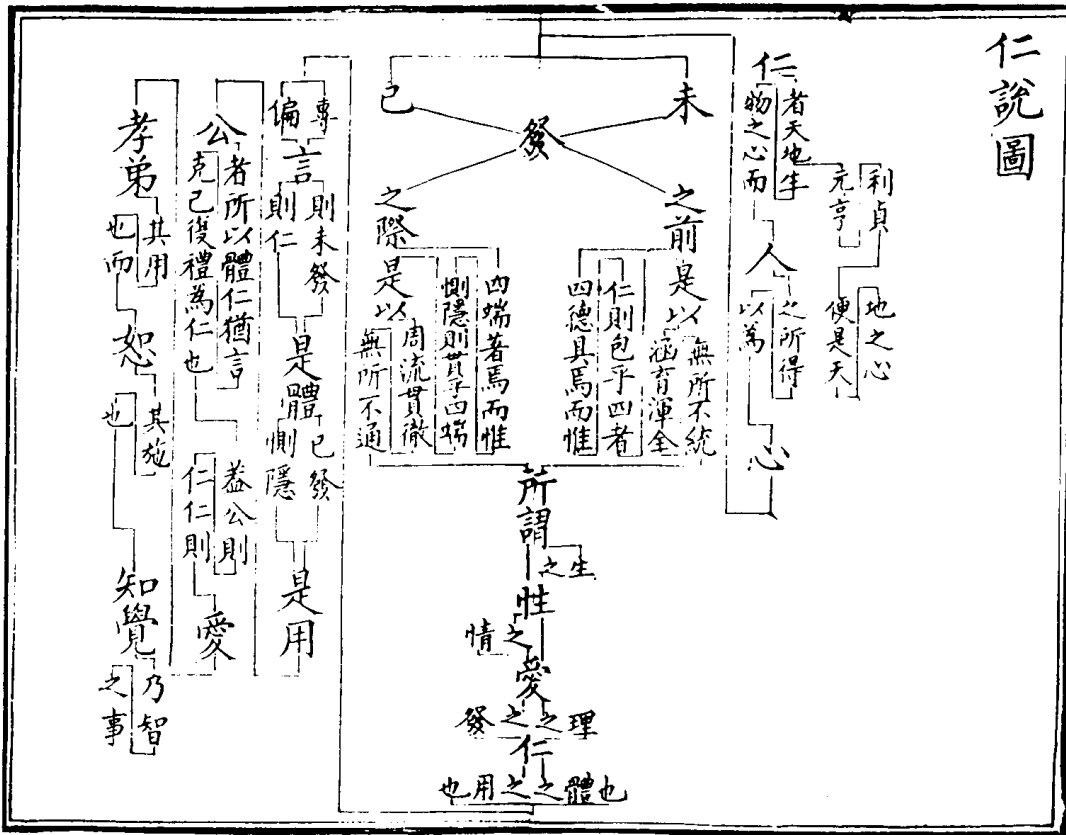 仁說圖
仁
者天地生
物之心而
利貞
元亨
人
之所得
以為
地之心
便是天
心
未
發
已
之前是以
無所不統
涵育渾全
仁則包乎四者
四德具焉而惟
之際是以
四端著焉而惟
惻隱則貫乎四端
周流貫徹
無所不通
所謂
生之
性
之情
愛
之理
之發
仁
之體也
之用也
專
偏
言
則未發
則仁
是體
已發
惻隱
是用
公
者所以體仁猶言
克己復禮為仁也
蓋公則
仁仁則
愛
孝弟
其用
也而
恕
其施
也
知覺
乃智
之事